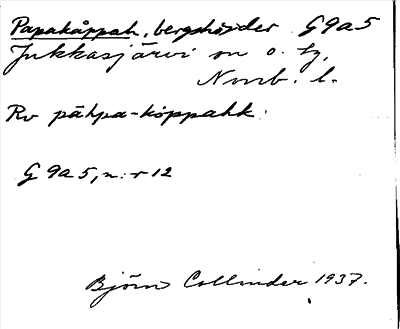 Papakåppah, bergshöjder G9a5
Jukkasjärvi sn o. tg,
Nmb. l.
Rv pāhpa-kòppahk.
G 9a 5, n:r 12
Björn Collinder 1937.